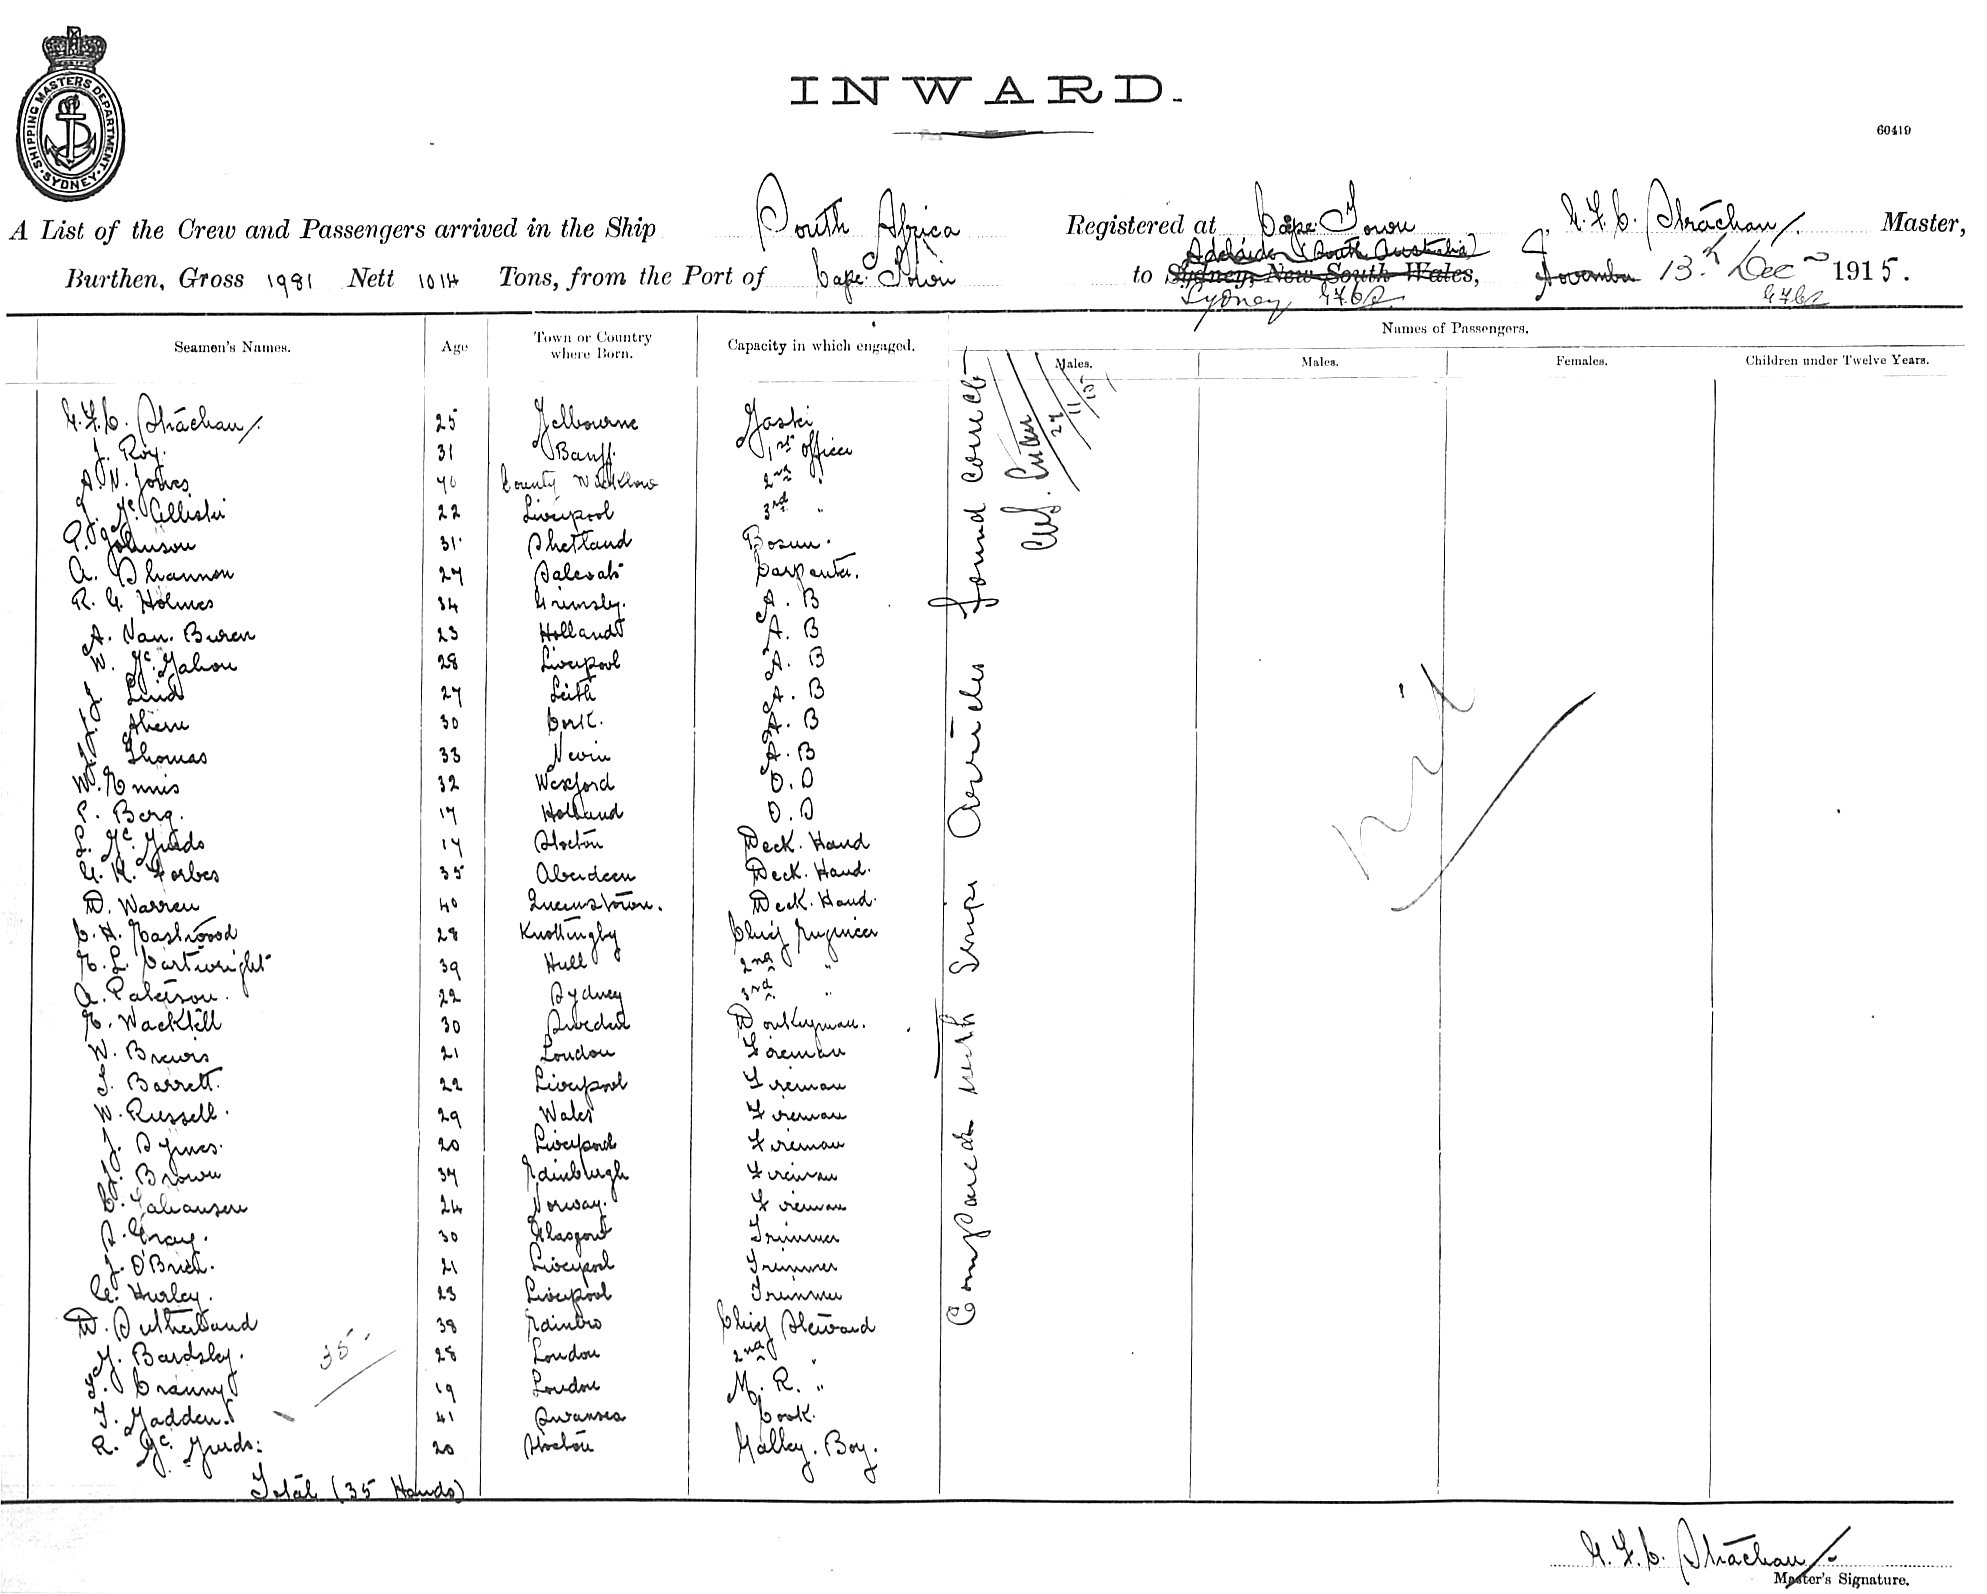 SHIPPING MASTERS DEPARTMENT
SYDNEY
INWARD.
60419
A List of the Crew and Passengers arrived in the Ship South Africa Registered at Cape Town, G.F.C. Strachan Master,
Adelaide (South Australia)
Burthen, Gross 1981 Nett 1014 Tons, from the Port of Cape Town to Sydney, New South Wales, November 13th Dec 1915.
Sydney
Seamen's Names. Age Town or Country where Born. Capacity in which engaged. Names of Passengers.
Males. Males. Females. Children under Twelve Years.
G.F.C. Strachan 25 Melbourne Master
J. Roy 31 Banff 1st Officer
A. N. Jones 40 County Wicklow 2nd "
J. McAllister 22 Liverpool 3rd "
P. Johnson 31 Shetland Bosun.
A. Shannon 27 Carpenter.
R. G. Holmes 34 Grimsby. A. B
A. Van. Buren 23 Holland A. B
W. McMahon 28 Liverpool A. B
Lind 27 Leith A. B
Ahern 30 Cork. A. B
Thomas 33 Nevin A. B
W. Ennis 32 Wexford O. S
P. Berg. 17 Holland O. S
17 Deck. Hand
G. K. Forbes 35 Aberdeen Deck. Hand.
D. Warren 40 Queenstown. Deck. Hand.
C. H. Eastwood 28 Knottingby Chief Engineer
E. L. Cartwright 39 Hull 2nd "
A. Paterson. 22 Sydney 3rd "
E. Wacktell 30 Sweden Donkeyman.
W. Brewis 21 London Fireman
T. Barrett. 22 Liverpool Fireman
W. Russell. 29 Wales Fireman
J. Symes. 20 Liverpool Fireman
J. Brown 37 Edinburgh Fireman
C. Johansen 24 Norway. Fireman
S. Gray. 30 Glasgow Trimmer
J. O'Brien. 21 Liverpool Trimmer
C. Hurley. 23 Liverpool Trimmer
D. Sutherland 38 Edinbro Chief Steward
Bardsley. 28 London 2nd "
T. Cranny 19 London M. R. "
T. Madden. 41 Swansea Cook.
R. 20 Galley. Boy.
35
Total (35 Hands)
Compared with Ships Articles found correct
27/11/15
Nil
G.F.C. Strachan
Master's Signature.